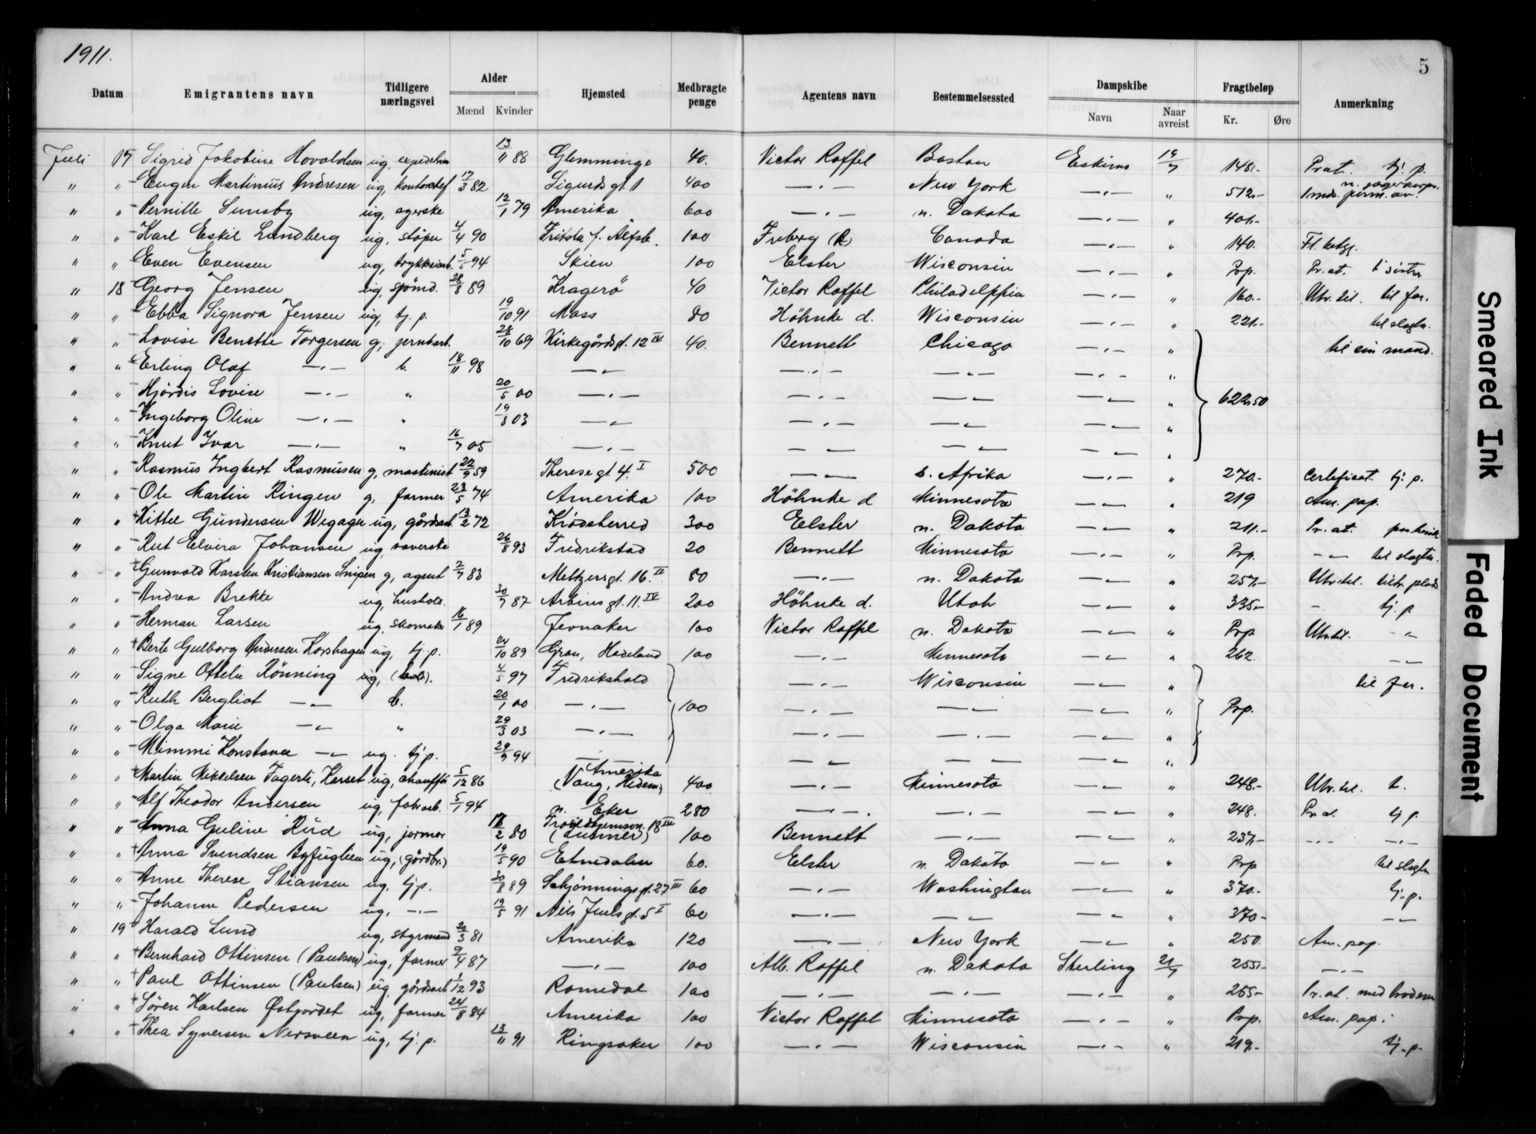 1911.
5
Datum Emigrantens navn Tidligere næringsvei Alder Mænd Kvinder Hjemsted Medbragte penge Agentens navn Bestemmelsessted Dampskibe Navn Naar avreist Fragtbeløp Kr. Øre Anmerkning
Juli 17 Sigrid Jakobine Hovaldsen ug, 13/11 88 Glemminge 40. Victor Roffel Boston Eskimo 148.- Pr. at. tj. p.
" " Eugen Martinius Andresen ug, kontorchef 17/3 82 Sigurds gt 1 400 —"— New York —"— " 512.-
" " Pernille Sunsby ug, 12/1 79 Amerika 600 —"— n. Dakota —"— " 401.-
" " Karl Eskil Lundberg ug, støper 4/4 90 100 Friberg (R) Canada —"— " 140.
" " Even Evensen ug, 5/5 94 Skien 100 Elster Wisconsin —"— " Prp. Pr. at. t. sister
" 18 Georg Jensen ug, 28/8 89 Kragerö 40 Victor Roffel Philadelphia —"— " 160.- Utv. til. til far.
" " Ebba Signora Jensen ug, tj. p. 19/10 91 Moss 80 Höhnke d. Wisconsin —"— " 221.- til slegtn.
" " Lovise Benette Torgersen g. jernbart. 28/10 69 Kirkegårdsgt. 12 IV 40. Bennett Chicago —"— " til sin mand.
" " Erling Olaf —"— b. 18/11 98 —"— —"— —"— —"— "
" " Hjördis Lovise —"— " 20/5 00 —"— —"— —"— —"— " 622.50
" " Ingeborg Oline —"— " 19/8 03 —"— —"— —"— —"— "
" " Knut Ivar —"— " 16/7 05 —"— —"— —"— —"— "
" " Rasmus Ingbert Rasmussen g, maskinist 22/9 59 Therese gt 4. I 500 —"— s. Afrika —"— " 270.- Certificat. tj. p.
" " Ole Martin Ringen g, farmer 23/5 74 Amerika 100 Höhnke d Minnesota —"— " 219 Am. pap.
" " Kittel Gundersen Wegager ug, gårdsarb 13/2 72 Krödsherred 300 Elster n. Dakota —"— " 211.- Pr. at.
" " Rut Elvira Johansen ug, væverske 26/8 93 Fredrikstad 20 Bennett Minnesota —"— " Prp. —"— til slegtn.
" " Gunvald Karsten Kristiansen g, agent 2/7 83 Meltzersgt. 16. IV 80 —"— n. Dakota —"— " 257.- Utv. til.
" " Andrea Brekke ug, hushold. 30/7 87 Arbins gt. 11. IV 200 Höhnke d. Utah —"— " 335.- - tj. p
" " Herman Larsen ug, skomaker 16/1 89 Jevnaker 100 Victor Roffel n. Dakota —"— " Prp Utv til. —"—
" " Berte Gulborg Andersen Korshagen ug, tj. p. 24/10 89 Gran, Hadeland 100 —"— Minnesota —"— " 262 —"—
" " Signe Ottelie Rönning ug, 4/5 97 Fredrikshald —"— Wisconsin —"— " til far.
" " Ruth Bergliot —"— b. 20/1 00 —"— 100 —"— —"— —"— " Prp.
" " Olga Marie —"— " 29/3 03 —"— —"— —"— —"— "
" " Mimmi Konstance —"— ug. tj. p. 29/9 94 —"— —"— —"— —"— "
" " Martin Mikkelsen Fagerli, Karset ug, chauffør 5/12 86 Amerika (Vang, Hedem) 400 Minnesota —"— " 248.- Utv. til. t.
" " Alf Theodor Andersen ug, fabr. arb. 5/1 94 n. Eker 280 —"— —"— —"— " 248. Pr. at. tj p.
" " Anna Guline Rud ug, farmer 17/2 80 100 Bennett —"— —"— " 237.- —"— —"—
" " Anna Svendsen Byfuglien ug, (gårdbr.) 19/5 90 Etnedalen 60. Elster n. Dakota —"— " Prp til slegtn
" " Anne Therese Stiansen ug, tj. p. 30/8 89 Schjönnings gt. 27 III 60 —"— Washington —"— " 370.- tj. p.
" " Johanne Pedersen ug, —"— 19/5 91 Nils Juels gt. 5 I 60 —"— —"— —"— " 370.- —"—
" 19 Harald Lund ug, styrmand 30/3 81 Amerika 120 —"— New York —"— " 250. Am. pap.
" " Bernhard Ottinsen (Paulsen) ug, farmer 9/4 87 —"— 100 Alb. Roffel n. Dakota Sterling 21/7 255.- —"—
" " Paul Ottinsen (Paulsen) ug, gårdsarb 1/12 93 Romedal 100 —"— —"— —"— " 265.- Pr. at. med broderen
" " Sören Karlsen Østgordet ug, farmer 24/8 84 Amerika 100 Victor Roffel Minnesota —"— " Prp. Am. pap.
" " Thea Syversen Nersveen ug, tj. p. 13/11 91 Ringsaker 100 —"— Wisconsin —"— " 219.- tj. p.
Smeared Ink
Faded Document